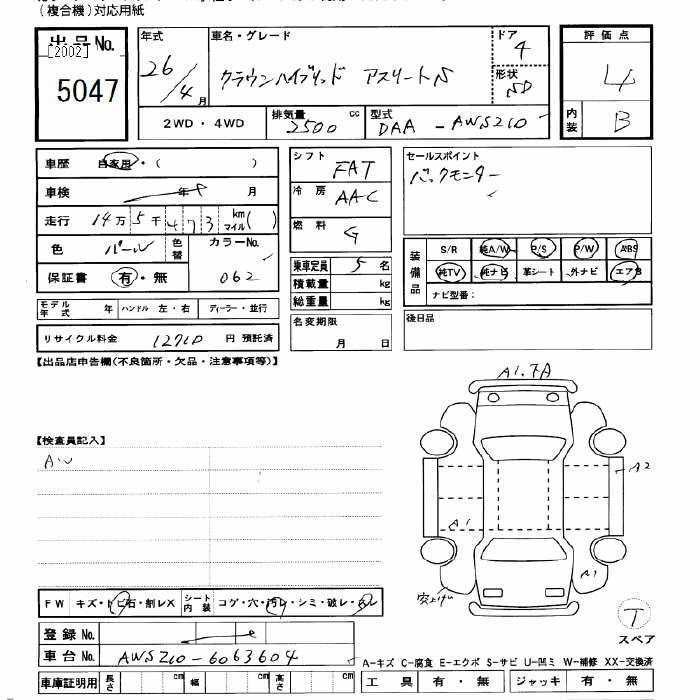 (複合機)対応用紙
出品No.
[2002]
5047
年式
26/4月
車名・グレード
クラウンハイブリッド アスリートS
ドア
4
形状
SD
評価点
4
内装
B
2WD・4WD
排気量
2500 cc
型式
DAA - AWS210
車歴 自家用・( )
車検 年 月
走行 14万 5千 473 km マイル( )
色 パール 色替 カラーNo.
062
保証書 有・無
モデル年式 年 ハンドル 左・右 ディーラー・並行
リサイクル料金 12710 円 預託済
シフト FAT
冷房 AAC
燃料 G
乗車定員 5 名
積載量 kg
総重量 kg
名変期限
月 日
セールスポイント
バックモニター
装備品
S/R 純A/W P/S P/W ABS
純TV 純ナビ 革シート 外ナビ エアB
ナビ型番:
後日品
【出品店申告欄(不良箇所・欠品・注意事項等)】
【検査員記入】
AW
A1.
A2
A1
A1
突上げ
T
スペア
FW キズ・トビ石・割レX シート内装 コゲ・穴・汚レ・シミ・破レ・
登録No.
車台No. AWS210-6063604
車庫証明用 長さ cm 幅 cm 高さ cm
A-キズ C-腐食 E-エクボ S-サビ U-凹ミ W-補修 XX-交換済
工具 有・無 ジャッキ 有・無